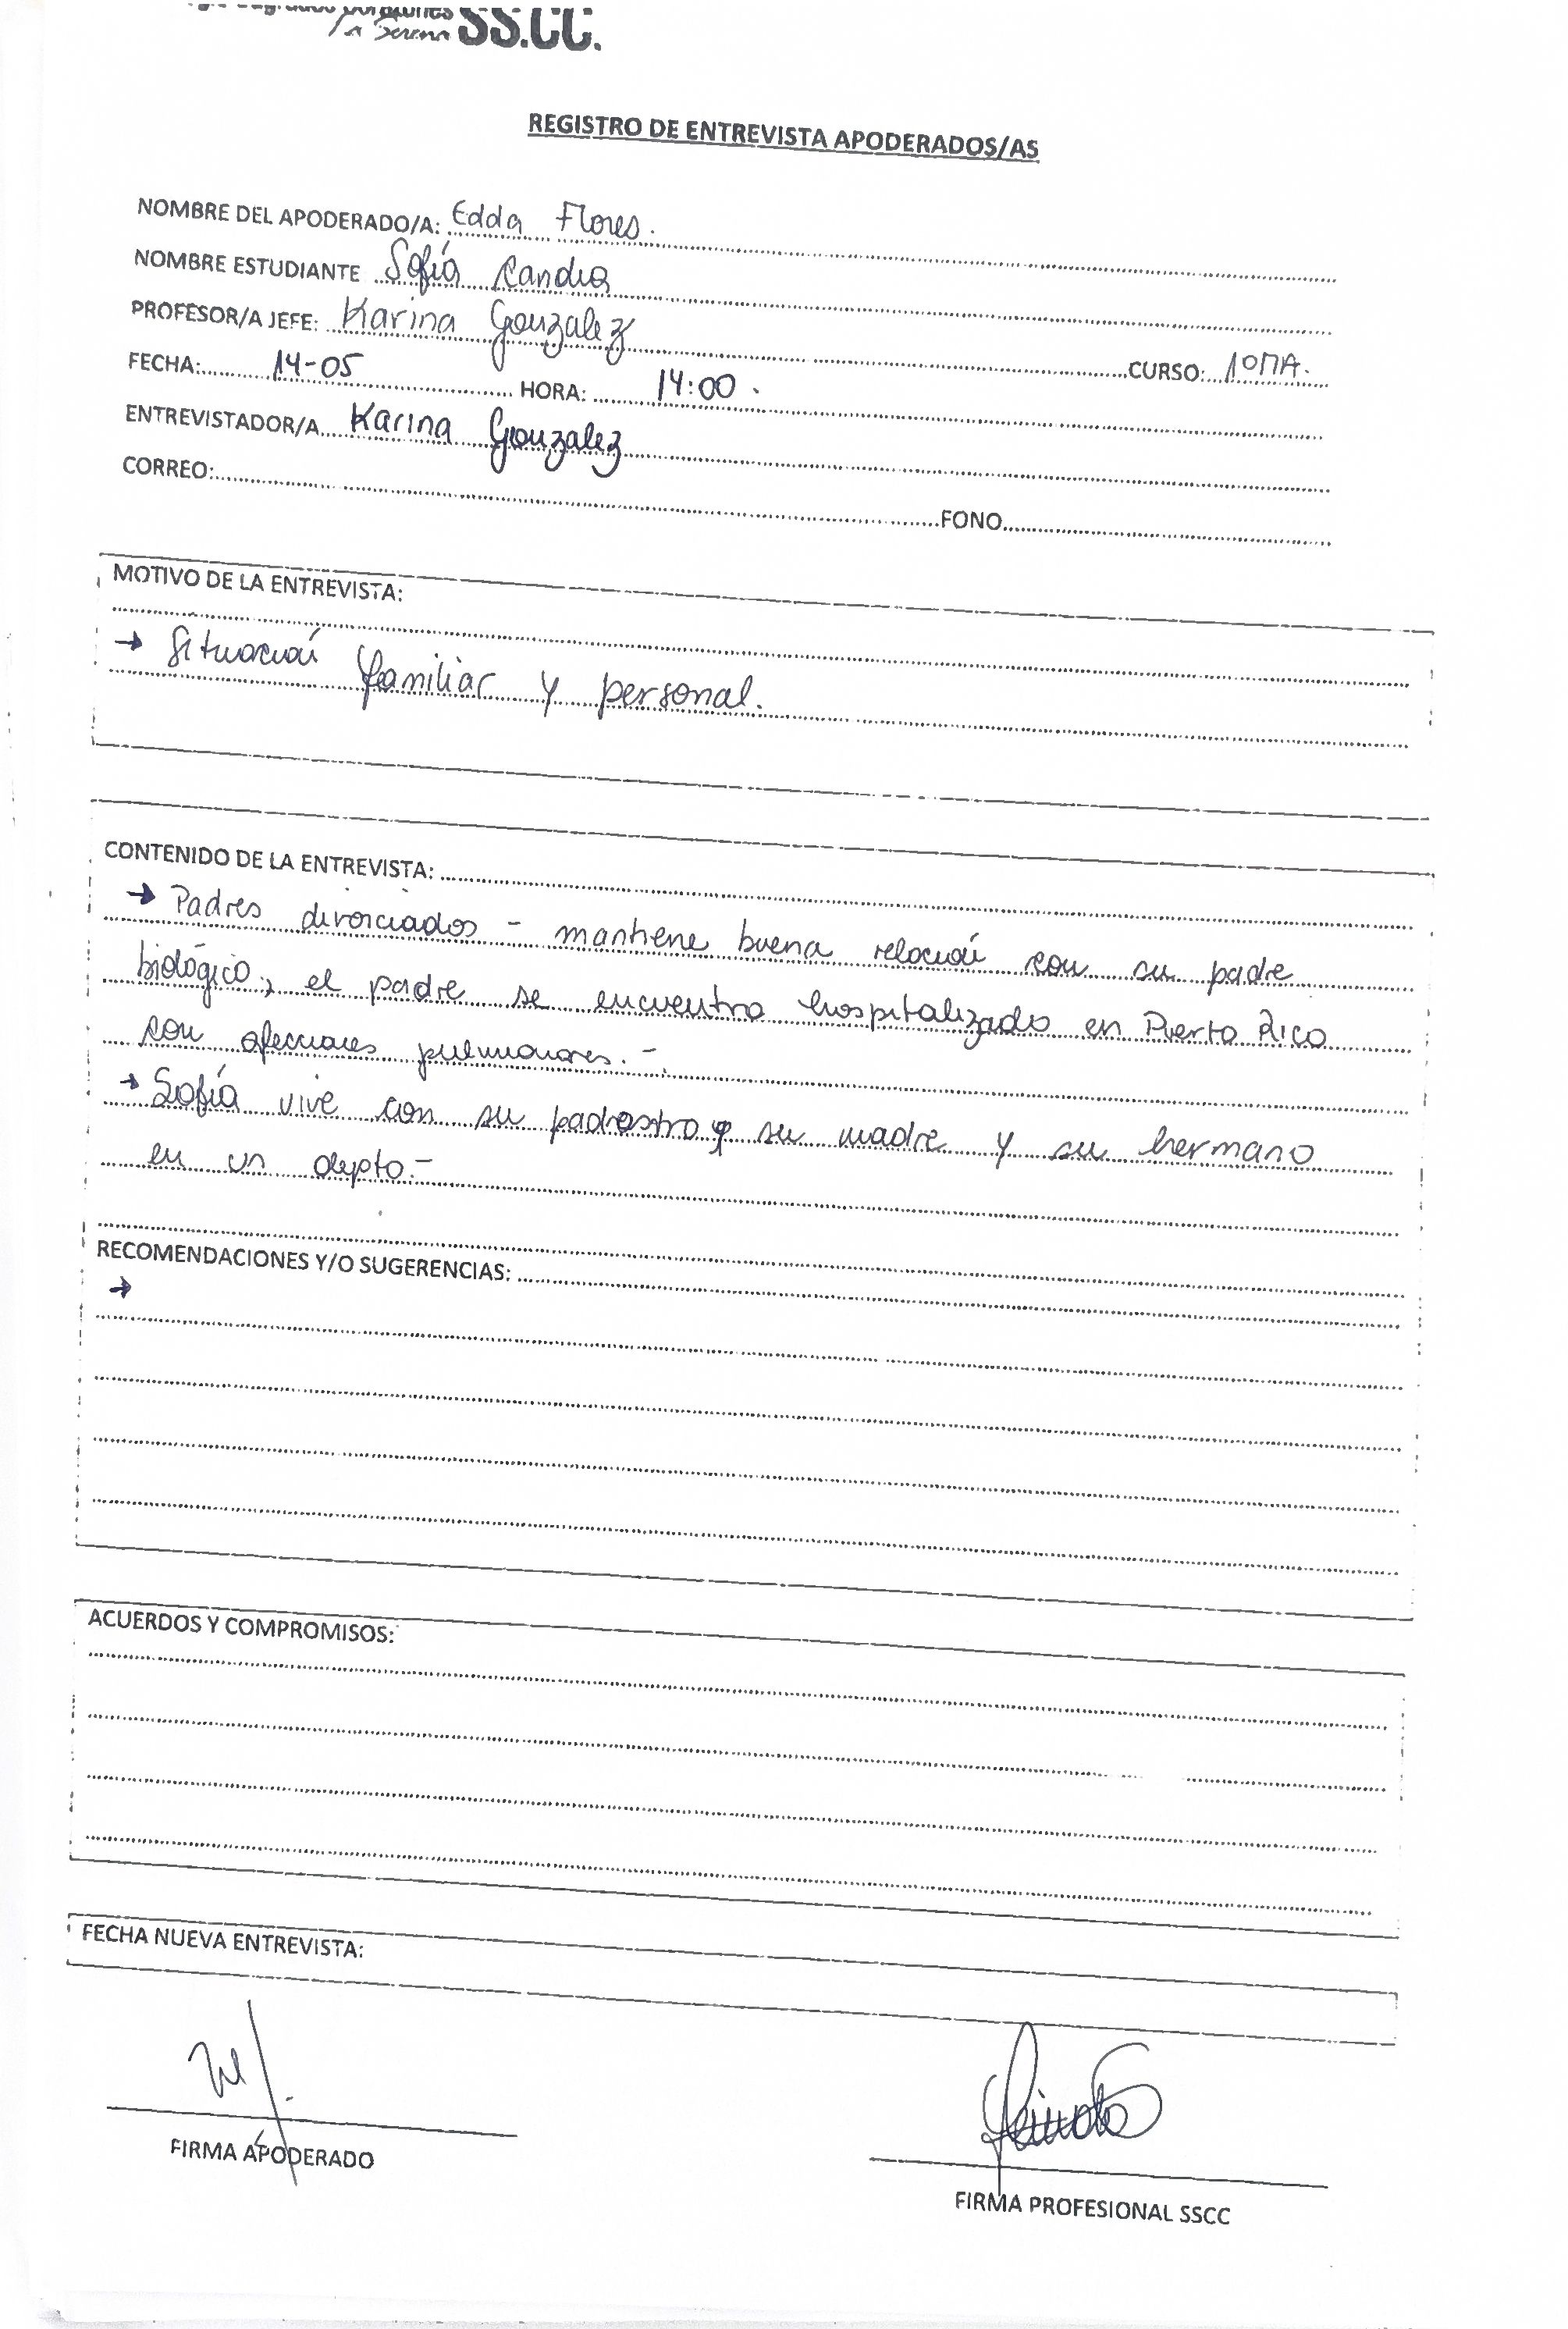 SS.CC.
REGISTRO DE ENTREVISTA APODERADOS/AS
NOMBRE DEL APODERADO/A: Edda Flores.
NOMBRE ESTUDIANTE Sofía Candia
PROFESOR/A JEFE: Karina Gonzalez CURSO: 1ºMA.
FECHA: 14-05 HORA: 14:00.
ENTREVISTADOR/A Karina Gonzalez
CORREO: FONO
MOTIVO DE LA ENTREVISTA:
→ Situación familiar y personal.
CONTENIDO DE LA ENTREVISTA:
→ Padres divorciados - mantiene buena relación con su padre
biológico, el padre se encuentra hospitalizado en Puerto Rico
con afecciones pulmonares.-
→ Sofía vive con su padrastro, su madre y su hermano
en un depto.-
RECOMENDACIONES Y/O SUGERENCIAS:
→
ACUERDOS Y COMPROMISOS:
FECHA NUEVA ENTREVISTA:
FIRMA APODERADO
FIRMA PROFESIONAL SSCC